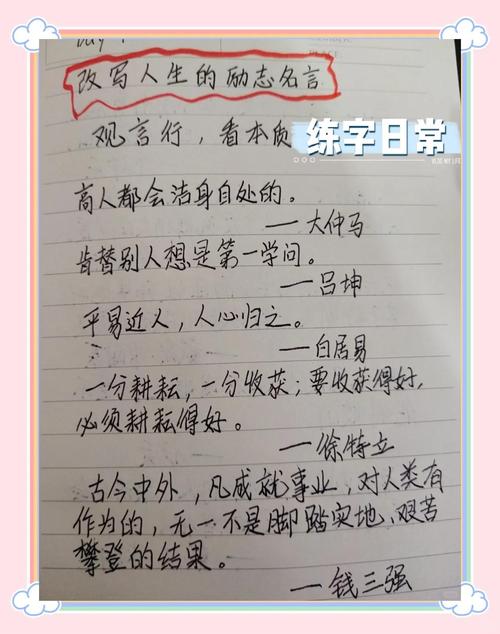 Day 1
改写人生的励志名言
观言行，看本质
练字日常
高人都会洁身自处的。
—大仲马
肯替别人想是第一学问。
—吕坤
平易近人，人心归之。
—白居易
一分耕耘，一分收获；要收获得好，
必须耕耘得好。
—徐特立
古今中外，凡成就事业，对人类有
作为的，无一不是脚踏实地、艰苦
攀登的结果。
—钱三强